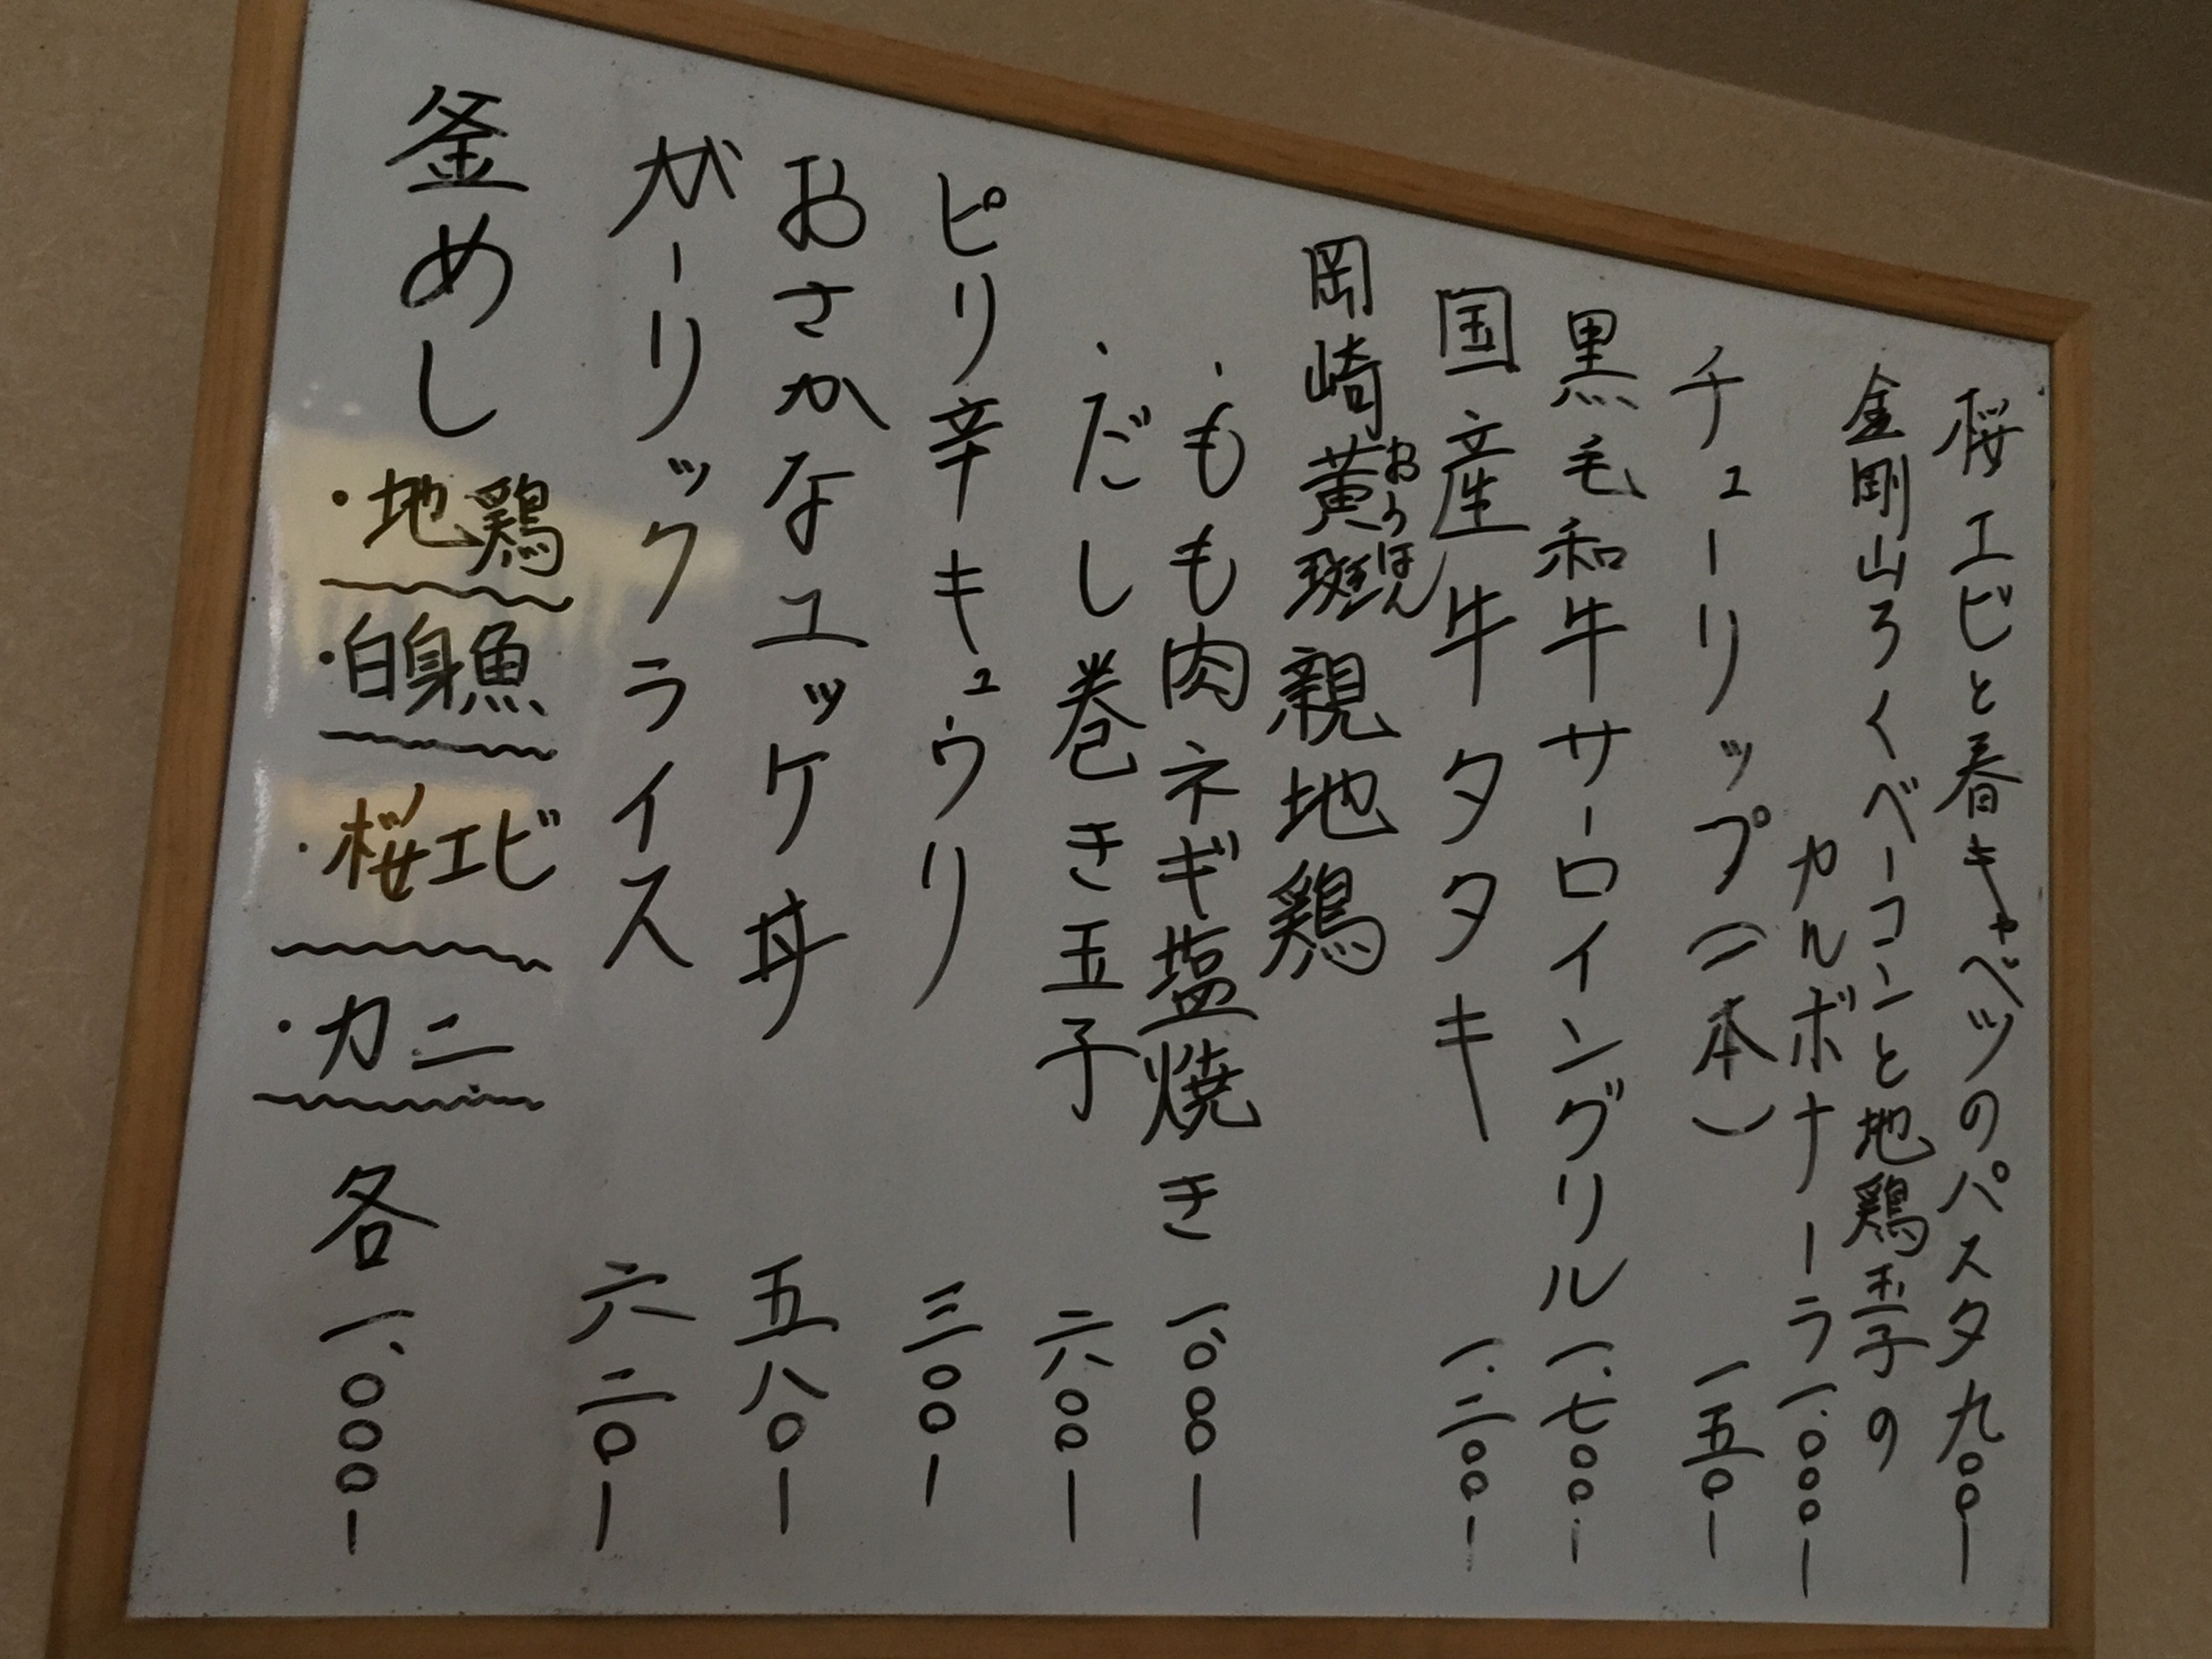 桜エビと春キャベツのパスタ 九〇〇ー
金剛山ろくベーコンと地鶏玉子の
カルボナーラ 一、〇〇〇ー
チューリップ(二本) 一五〇ー
黒毛和牛サーロイングリル 一、七〇〇ー
国産牛タタキ 一、二〇〇ー
岡崎黄斑親地鶏
おうはん
・もも肉ネギ塩焼き 一、〇〇〇ー
・だし巻き玉子 六〇〇ー
ピリ辛キュウリ 三〇〇ー
おさかなユッケ丼 五八〇ー
ガーリックライス 六二〇ー
釜めし ・地鶏 ・白身魚 ・桜エビ ・カニ 各一、〇〇〇ー